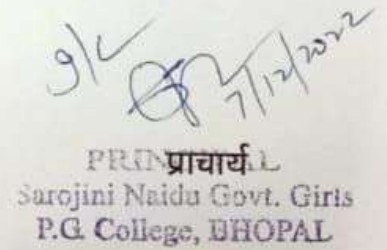 7/12/2022
PRINCIPAL
प्राचार्य
Sarojini Naidu Govt. Girls
P.G. College, BHOPAL